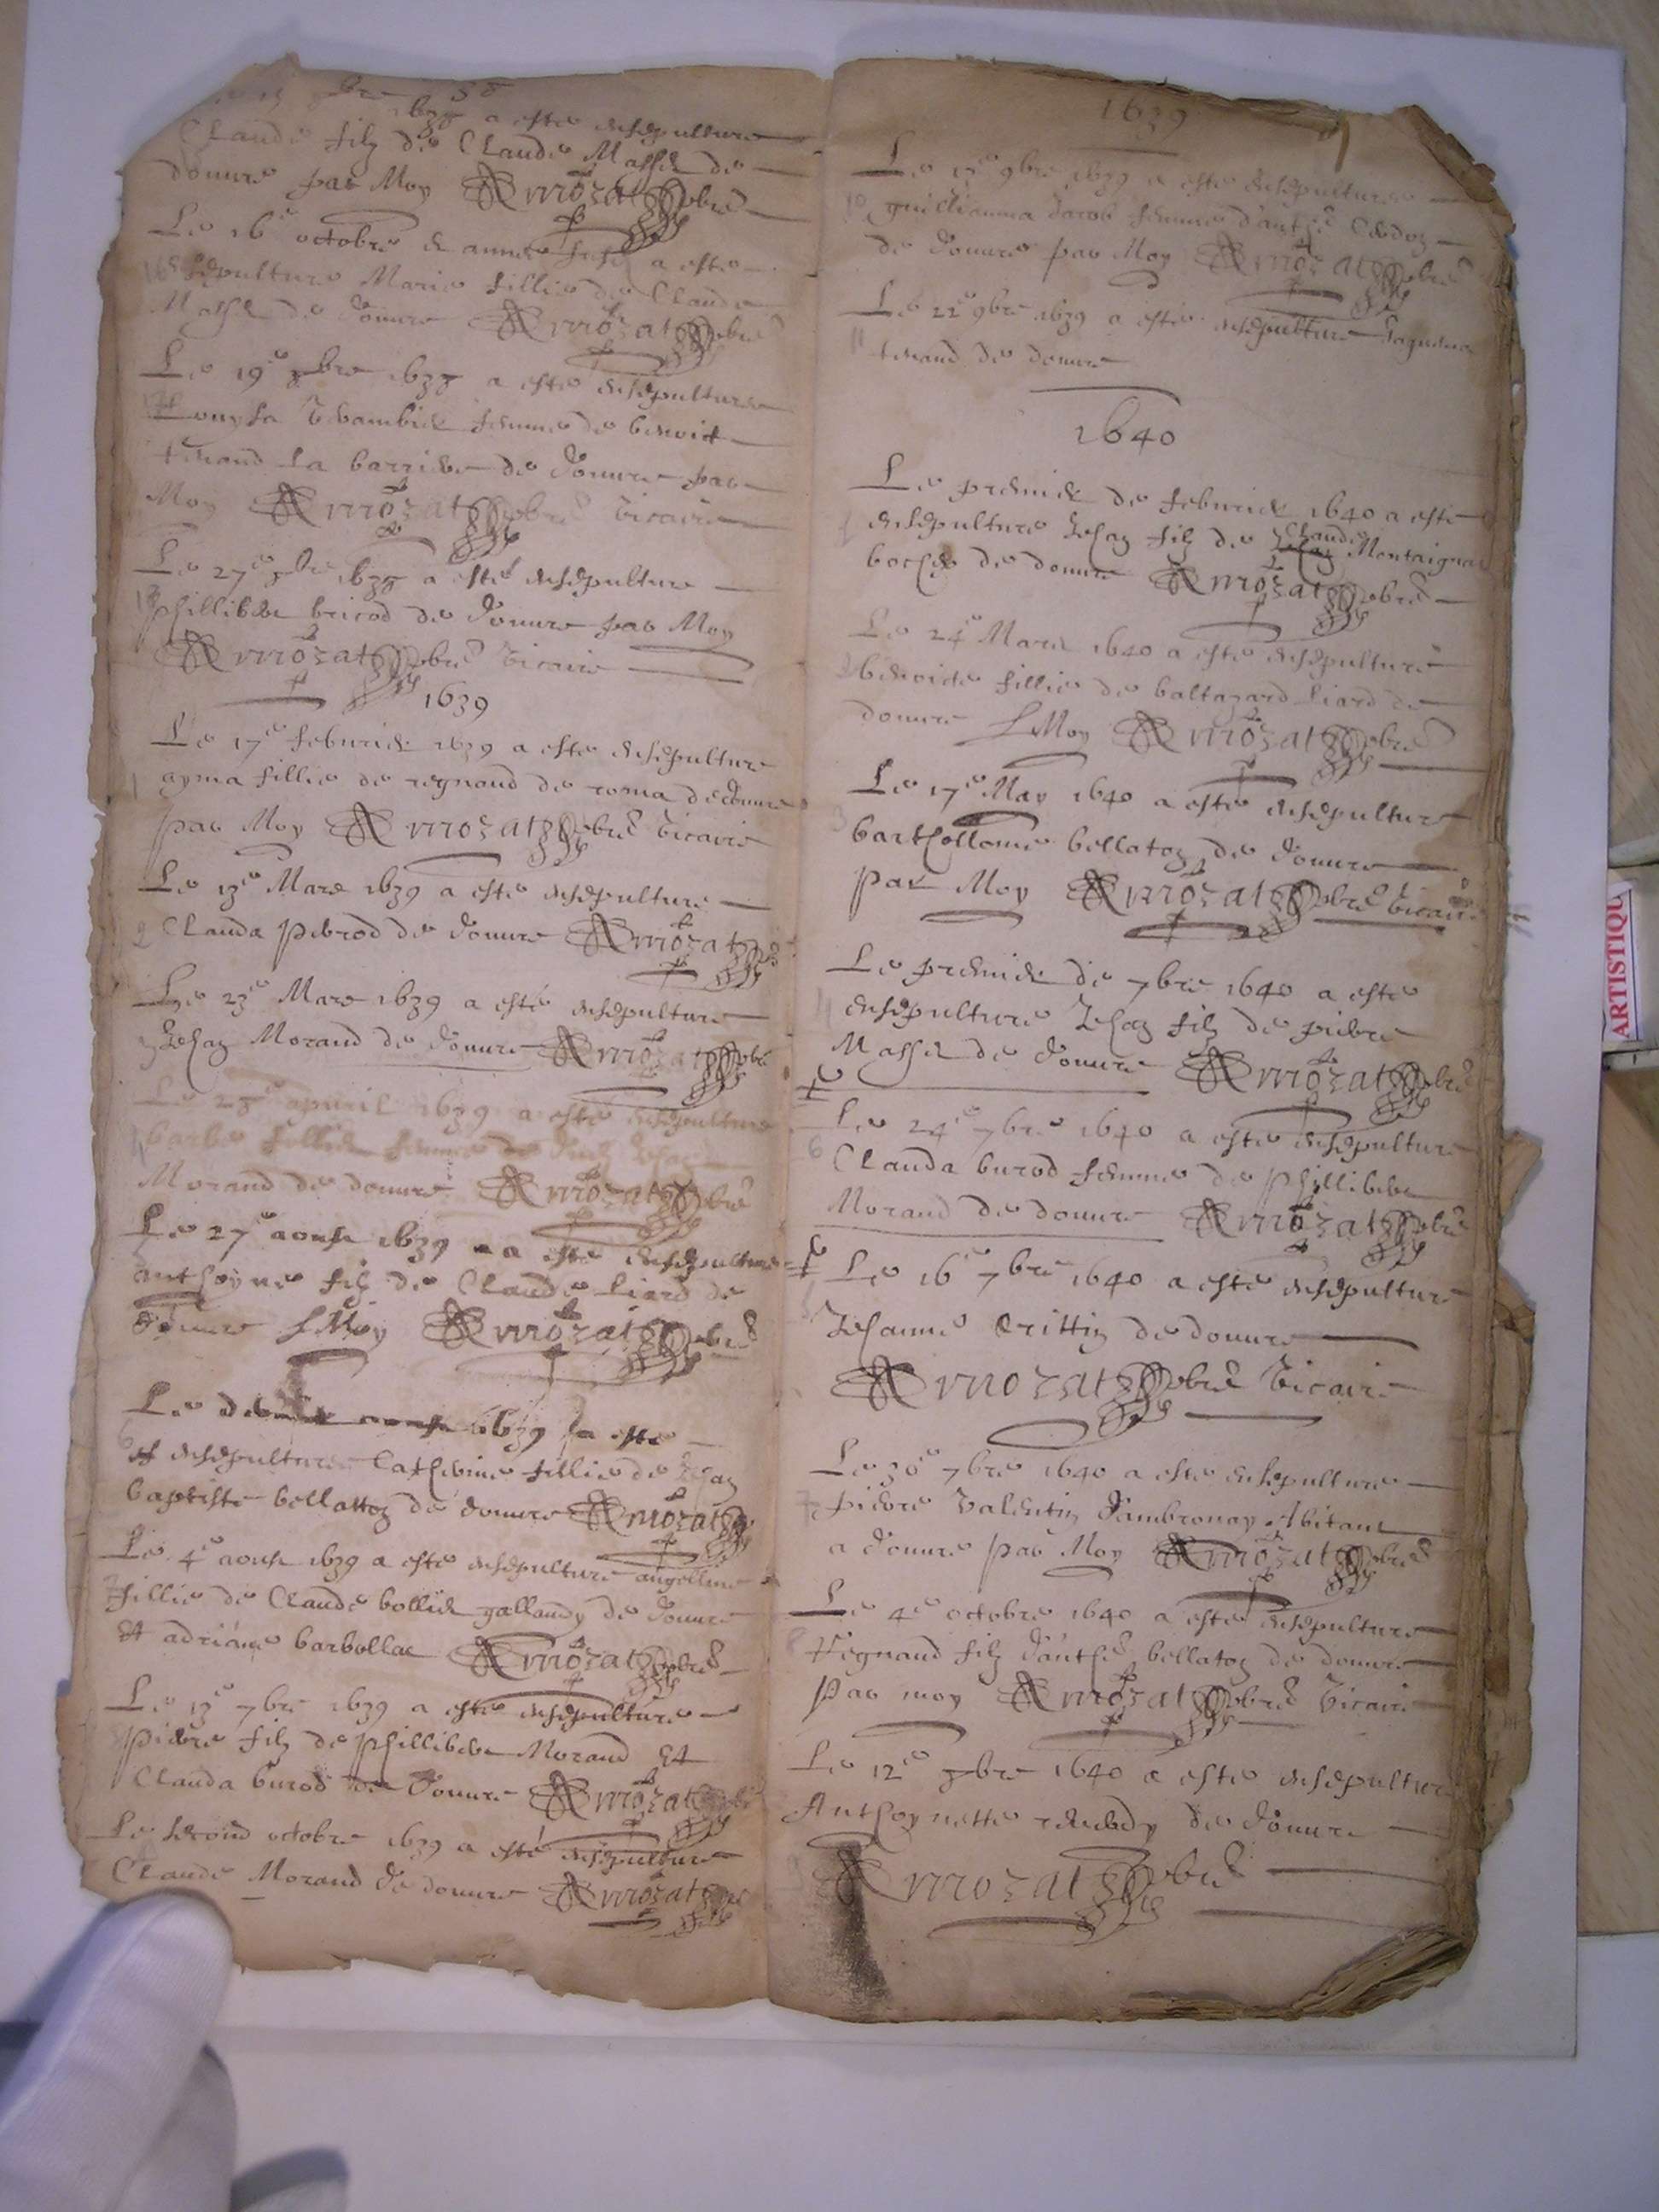 1638 a esté ensepulture
Claude filz de Claude Massé de
douure par Moy Arrozat pbre
Le 16e octobre & annee susd a esté
ensepulture Marie fillie de Claude
Massé de douure Arrozat pbre
Le 19e 8bre 1638 a esté ensepulture
Louysa femme de benoict
tenand la barriere de douure par
Moy Arrozat pbre vicaire
Le 27e 8bre 1638 a esté ensepulture
phillibert bricod de douure par Moy
Arrozat pbre vicaire
1639
Le 17e feburier 1639 a esté ensepulture
ayma fillie de regnaud de roma de douure
par Moy Arrozat pbre vicaire
Le 13e Mars 1639 a esté ensepulture
Clauda perrod de douure Arrozat pbre
Le 23e Mars 1639 a esté ensepulture
Jehan Morand de douure Arrozat pbre
Le 28e apuril 1639 a esté ensepulture
barbe femme de Jehan
Morand de douure Arrozat pbre
Le 27e aoust 1639 a esté ensepulture
anthoyne filz de Claude liard de
douure p Moy Arrozat pbre
Le 1639 a esté
ensepulture Catherine fillie de Jehan
baptiste bellatton de douure Arrozat
Le 4e aoust 1639 a esté ensepulture angelline
fillie de Claude bollié gallandy de douure
Et adriane barbollat Arrozat pbre
Le 13e 7bre 1639 a esté ensepulture
pierre filz de phillibert Morand Et
Clauda burod de douure Arrozat pbre
Le second octobre 1639 a esté ensepulture
Claude Morand de douure Arrozat pbre
1639
Le 13e 9bre 1639 a esté ensepulture
guillianma Jacob femme d'anthe
de douure par Moy Arrozat pbre
Le 22e 9bre 1639 a esté ensepulture Jaquema
tenand de douure
1640
Le premier de feburier 1640 a esté
ensepulture Jehan filz de Jehan Claude Montaigna
bochon de douure Arrozat pbre
Le 24e Mars 1640 a esté ensepulture
benoite fillie de baltazard liard de
douure p Moy Arrozat pbre
Le 17e May 1640 a esté ensepulture
barthollome bellaton de douure
par Moy Arrozat pbre vicaire
Le premier de 7bre 1640 a esté
ensepulture Jehan filz de pierre
Massé de douure Arrozat pbre
Le 24e 7bre 1640 a esté ensepulture
Clauda burod femme de phillibert
Morand de douure Arrozat pbre
Le 16e 7bre 1640 a esté ensepulture
Jehanne Crittin de douure
Arrozat pbre vicaire
Le 30e 7bre 1640 a esté ensepulture
pierre Valentin d'ambronay Abitant
a douure par Moy Arrozat pbre
Le 4e octobre 1640 a esté ensepulture
Regnaud filz d'anthe bellaton de douure
par moy Arrozat pbre vicaire
Le 12e 8bre 1640 a esté ensepulture
Anthoynette de douure
Arrozat pbre
ARTISTIQU